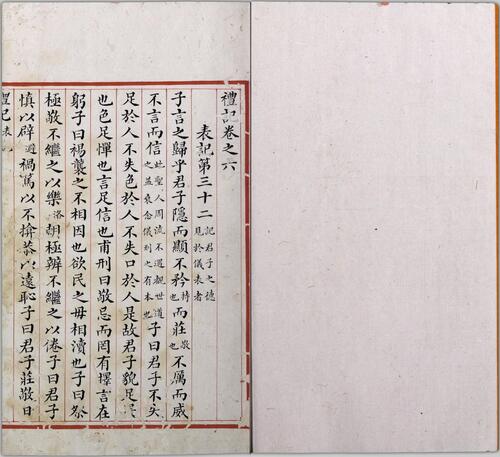 禮記卷之六
表記第三十二記君子之德見於儀表者
子言之歸乎君子隱而顯不矜持也而莊敬也不厲而威
不言而信此聖人周流不遇觀世道之益衰念儀刑之有本也子曰君子不失
足於人不失色於人不失口於人是故君子貌足畏
也色足憚也言足信也甫刑曰敬忌而罔有擇言在
躬子曰裼襲之不相因也欲民之毋相瀆也子曰祭
極敬不繼之以樂洛朝極辨不繼之以倦子曰君子
慎以辟避禍篤以不揜恭以遠恥子曰君子莊敬日
禮記表記